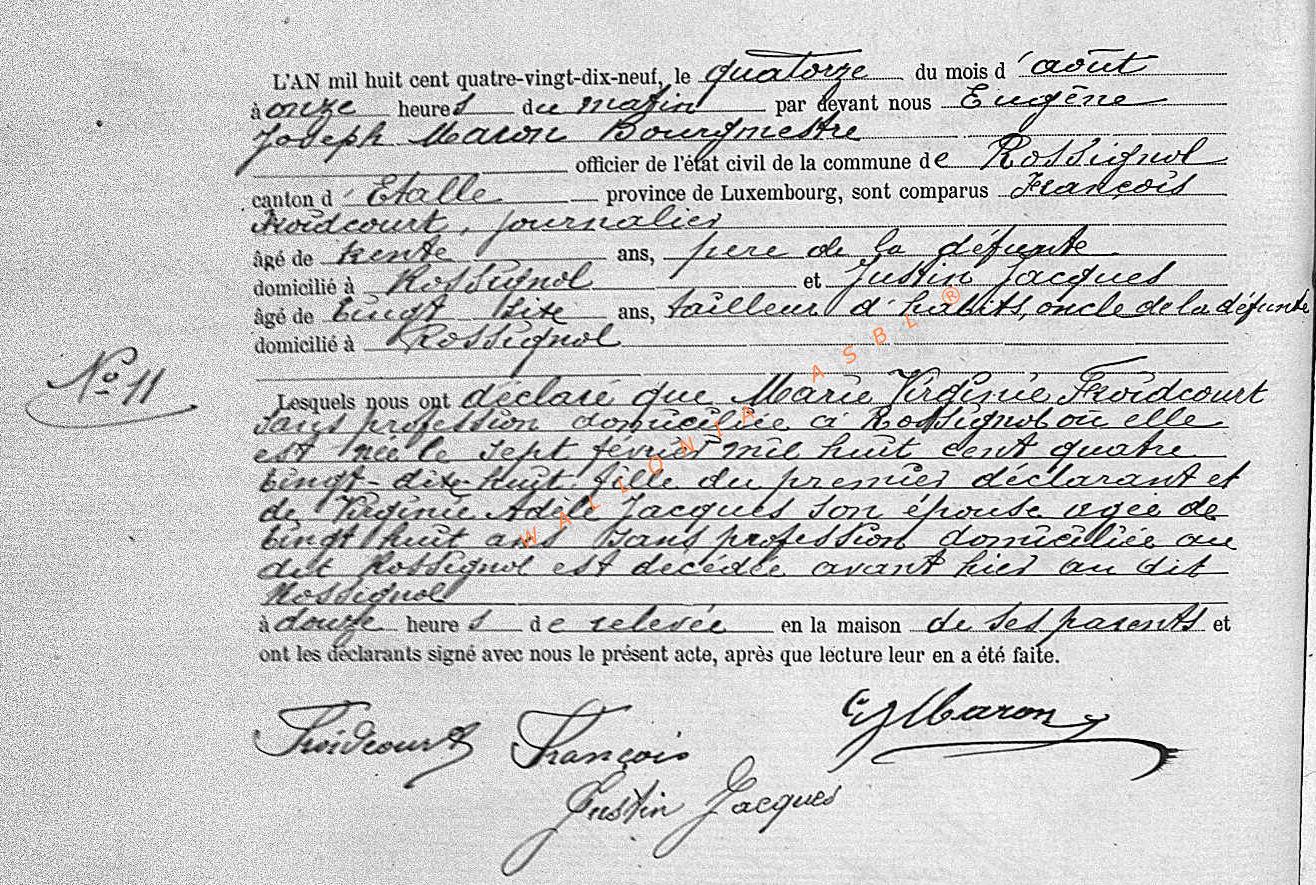 L'AN mil huit cent quatre-vingt-dix-neuf, le quatorze du mois d'août
à onze heures du matin par devant nous Eugène
Joseph Maron Bourgmestre
officier de l'état civil de la commune de Rossignol
canton d'Etalle province de Luxembourg, sont comparus François
Froidcourt, journalier
âgé de trente ans, père de la défunte
domicilié à Rossignol et Justin Jacques
âgé de vingt six ans, tailleur d'habits, oncle de la défunte
domicilié à Rossignol
N° 11
Lesquels nous ont déclaré que Marie Virginie Froidcourt
sans profession domiciliée à Rossignol où elle
est née le sept février mil huit cent quatre
vingt-dix-huit fille du premier déclarant et
de Virginie Adèle Jacques son épouse agée de
vingt huit ans sans profession domiciliée au
dit Rossignol est décédée avant hier au dit
Rossignol
à douze heures de relevée en la maison de ses parents et
ont les déclarants signé avec nous le présent acte, après que lecture leur en a été faite.
Froidcourt François EJMaron
Justin Jacques
WALLONIA ASBL ®